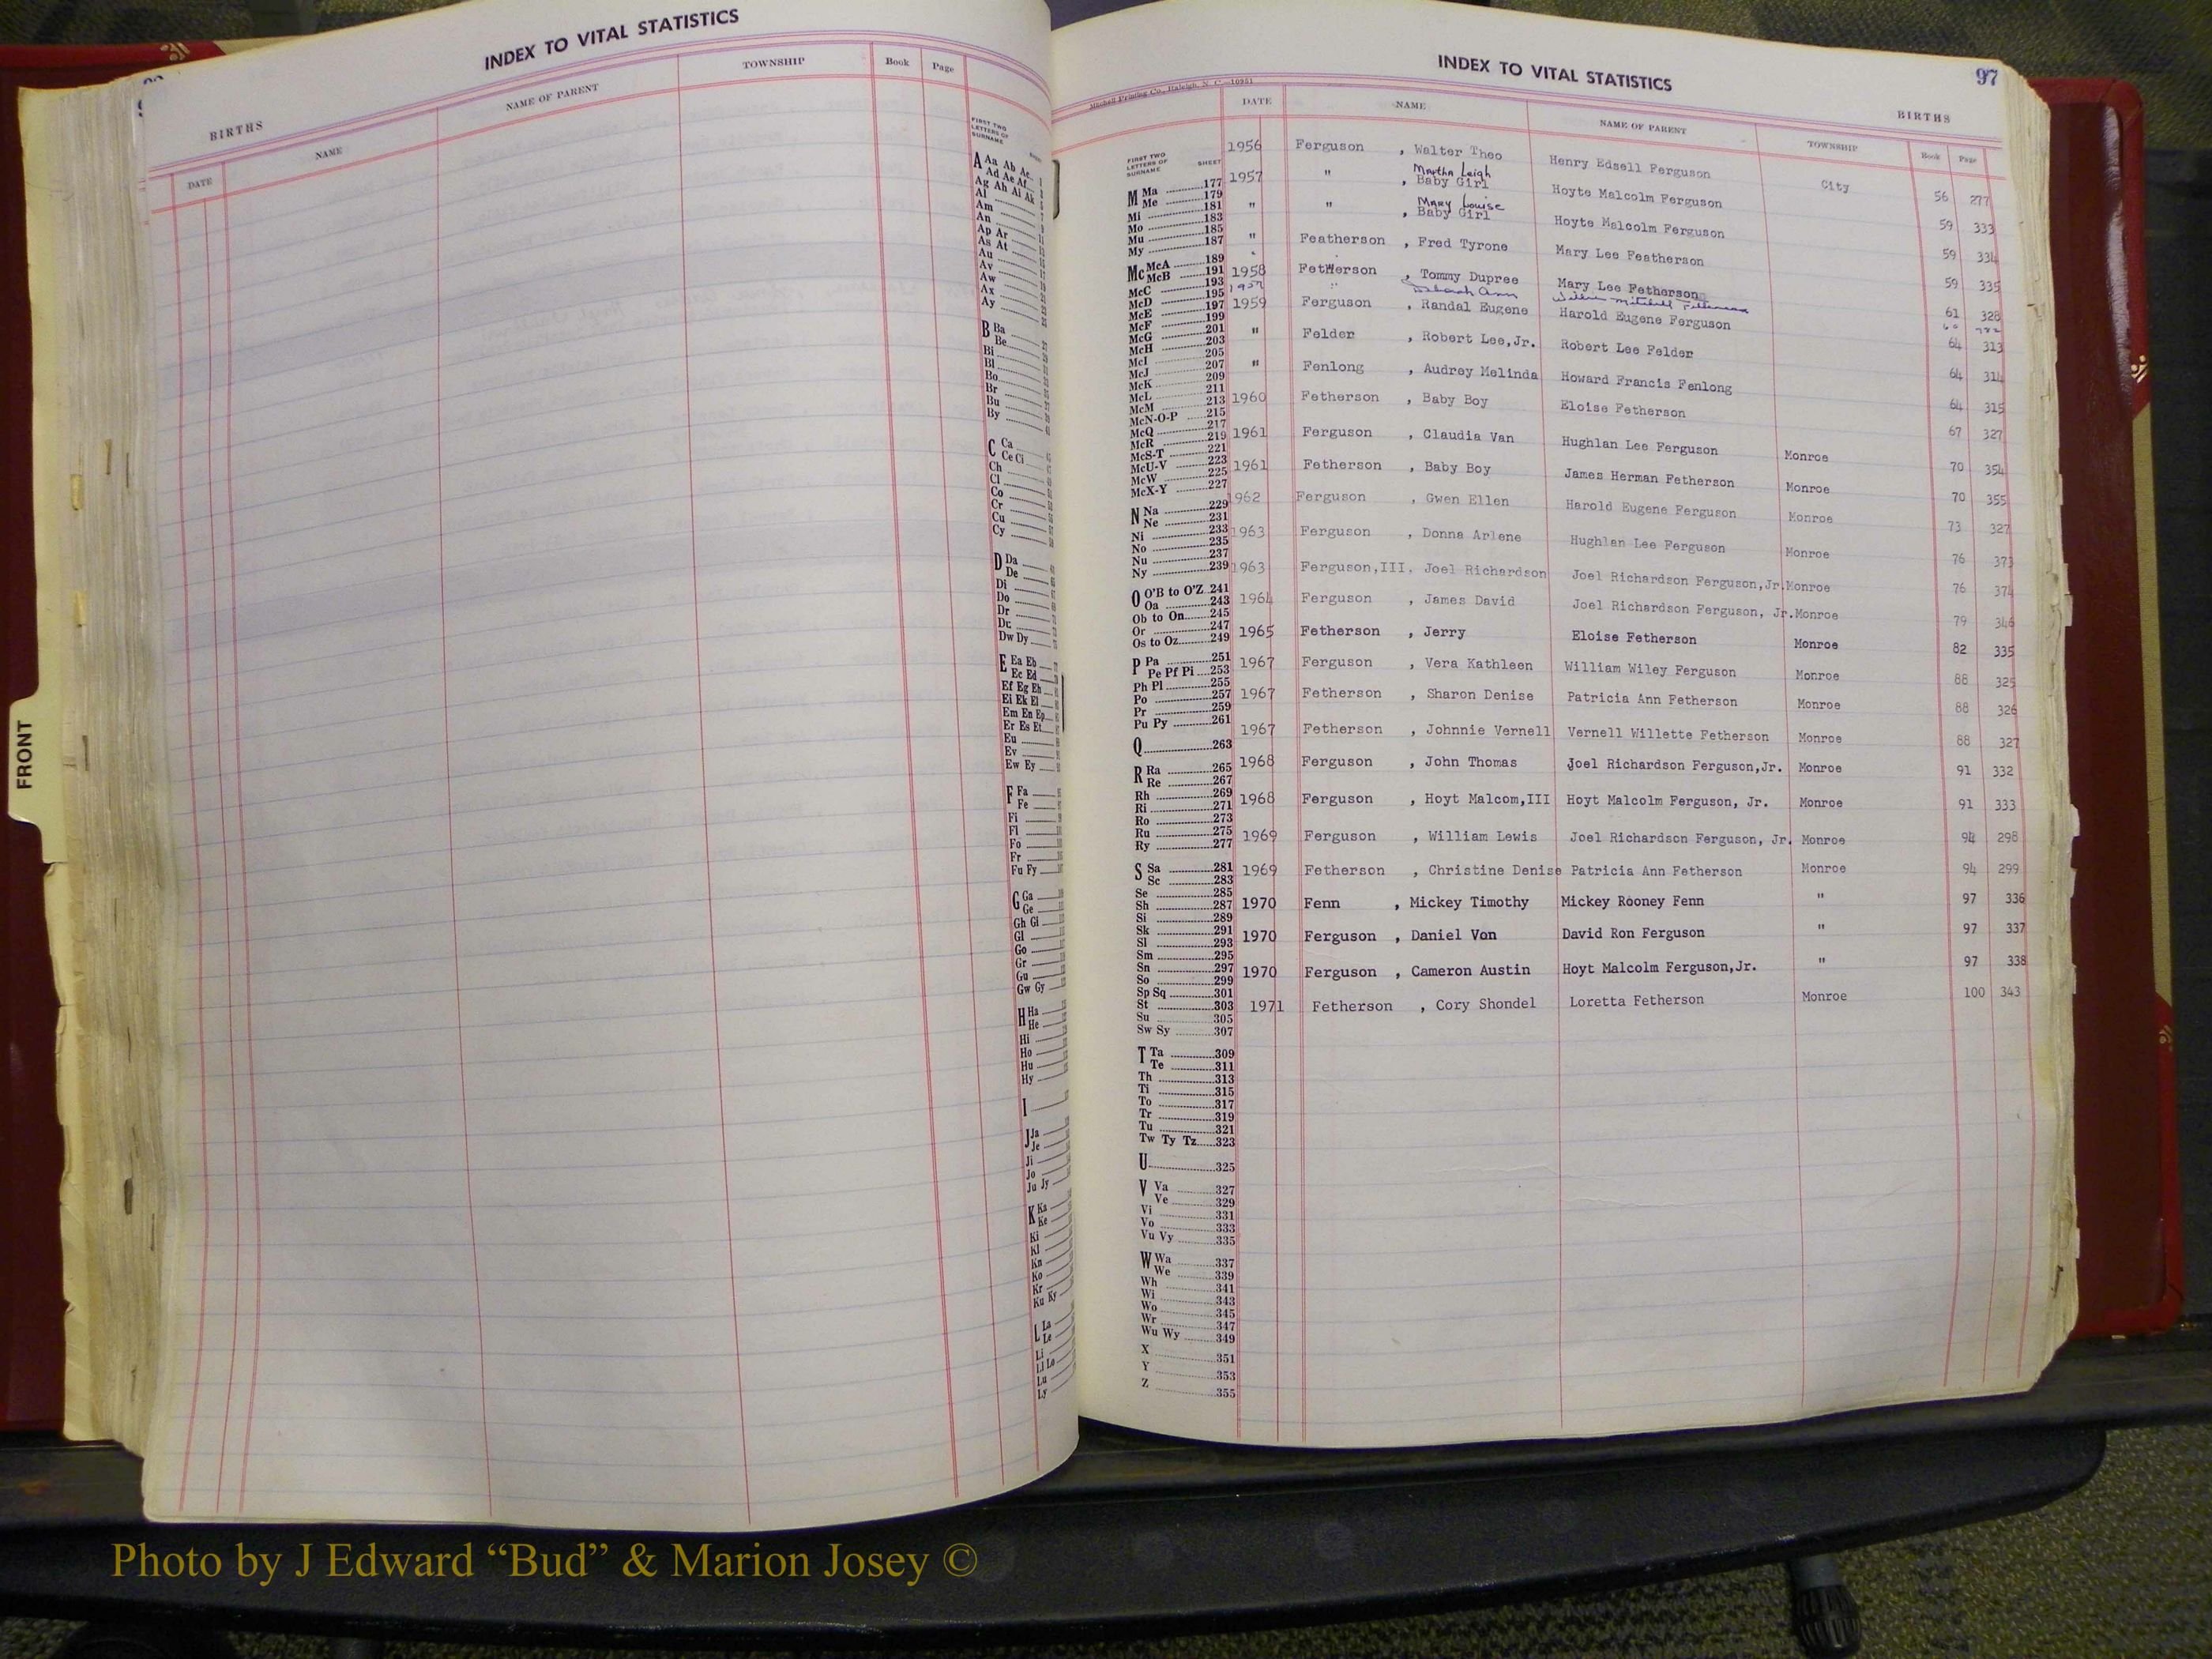 INDEX TO VITAL STATISTICS
BIRTHS
DATE NAME NAME OF PARENT TOWNSHIP Book Page
FIRST TWO
LETTERS OF
SURNAME
A Aa Ab Ac
Ad Ae Af
Ag Ah Ai Ak
Al
Am
An
Ap Ar
As At
Au
Av
Aw
Ax
Ay
B Ba
Be
Bi
Bl
Bo
Br
Bu
By
C Ca
Ce Ci
Ch
Cl
Co
Cr
Cu
Cy
D Da
De
Di
Do
Dr
Du
Dw Dy
E Ea Eb
Ec Ed
Ef Eg Eh
Ei Ek El
Em En Ep
Er Es Et
Eu
Ev
Ew Ey
F Fa
Fe
Fi
Fl
Fo
Fr
Fu Fy
G Ga
Ge
Gh Gi
Gl
Go
Gr
Gu
Gw Gy
H Ha
He
Hi
Ho
Hu
Hy
I
J Ja
Je
Ji
Jo
Ju Jy
K Ka
Ke
Ki
Kl
Kn
Ko
Kr
Ku Ky
L La
Le
Li
Ll Lo
Lu
Ly
FRONT
INDEX TO VITAL STATISTICS
97
Mitchell Printing Co., Raleigh, N. C.—10951
BIRTHS
DATE NAME NAME OF PARENT TOWNSHIP Book Page
FIRST TWO
LETTERS OF
SURNAME SHEET
M Ma 177
Me 179
Mi 181
Mo 183
Mu 185
My 187
Mc McA 189
McB 191
McC 193
McD 195
McE 197
McF 199
McG 201
McH 203
McI 205
McJ 207
McK 209
McL 211
McM 213
McN-O-P 215
McQ 217
McR 219
McS-T 221
McU-V 223
McW 225
McX-Y 227
N Na 229
Ne 231
Ni 233
No 235
Nu 237
Ny 239
O O'B to O'Z 241
Oa 243
Ob to On 245
Or 247
Os to Oz 249
P Pa 251
Pe Pf Pi 253
Ph Pl 255
Po 257
Pr 259
Pu Py 261
Q 263
R Ra 265
Re 267
Rh 269
Ri 271
Ro 273
Ru 275
Ry 277
S Sa 281
Sc 283
Se 285
Sh 287
Si 289
Sk 291
Sl 293
Sm 295
Sn 297
So 299
Sp Sq 301
St 303
Su 305
Sw Sy 307
T Ta 309
Te 311
Th 313
Ti 315
To 317
Tr 319
Tu 321
Tw Ty Tz 323
U 325
V Va 327
Ve 329
Vi 331
Vo 333
Vu Vy 335
W Wa 337
We 339
Wh 341
Wi 343
Wo 345
Wr 347
Wu Wy 349
X 351
Y 353
Z 355
1956 Ferguson , Walter Theo Henry Edsell Ferguson City 56 277
Martha Leigh
1957 " , Baby Girl Hoyte Malcolm Ferguson 59 333
Mary Louise
" " , Baby Girl Hoyte Malcolm Ferguson 59 334
" Featherson , Fred Tyrone Mary Lee Featherson 59 335
1958 Fetherson , Tommy Dupree Mary Lee Fetherson 61 328
Deborah Ann Mitchell
1959 Ferguson , Randal Eugene Harold Eugene Ferguson 64 313
" Felder , Robert Lee,Jr. Robert Lee Felder 64 314
" Fenlong , Audrey Melinda Howard Francis Fenlong 64 315
1960 Fetherson , Baby Boy Eloise Fetherson 67 327
1961 Ferguson , Claudia Van Hughlan Lee Ferguson Monroe 70 354
1961 Fetherson , Baby Boy James Herman Fetherson Monroe 70 355
1962 Ferguson , Gwen Ellen Harold Eugene Ferguson Monroe 73 327
1963 Ferguson , Donna Arlene Hughlan Lee Ferguson Monroe 76 373
1963 Ferguson,III. Joel Richardson Joel Richardson Ferguson,Jr.Monroe 76 374
1964 Ferguson , James David Joel Richardson Ferguson, Jr.Monroe 79 346
1965 Fetherson , Jerry Eloise Fetherson Monroe 82 335
1967 Ferguson , Vera Kathleen William Wiley Ferguson Monroe 88 325
1967 Fetherson , Sharon Denise Patricia Ann Fetherson Monroe 88 326
1967 Fetherson , Johnnie Vernell Vernell Willette Fetherson Monroe 88 327
1968 Ferguson , John Thomas Joel Richardson Ferguson,Jr. Monroe 91 332
1968 Ferguson , Hoyt Malcom,III Hoyt Malcolm Ferguson, Jr. Monroe 91 333
1969 Ferguson , William Lewis Joel Richardson Ferguson, Jr. Monroe 94 298
1969 Fetherson , Christine Denise Patricia Ann Fetherson Monroe 94 299
1970 Fenn , Mickey Timothy Mickey Rooney Fenn " 97 336
1970 Ferguson , Daniel Von David Ron Ferguson " 97 337
1970 Ferguson , Cameron Austin Hoyt Malcolm Ferguson,Jr. " 97 338
1971 Fetherson , Cory Shondel Loretta Fetherson Monroe 100 343
Photo by J Edward “Bud” & Marion Josey ©